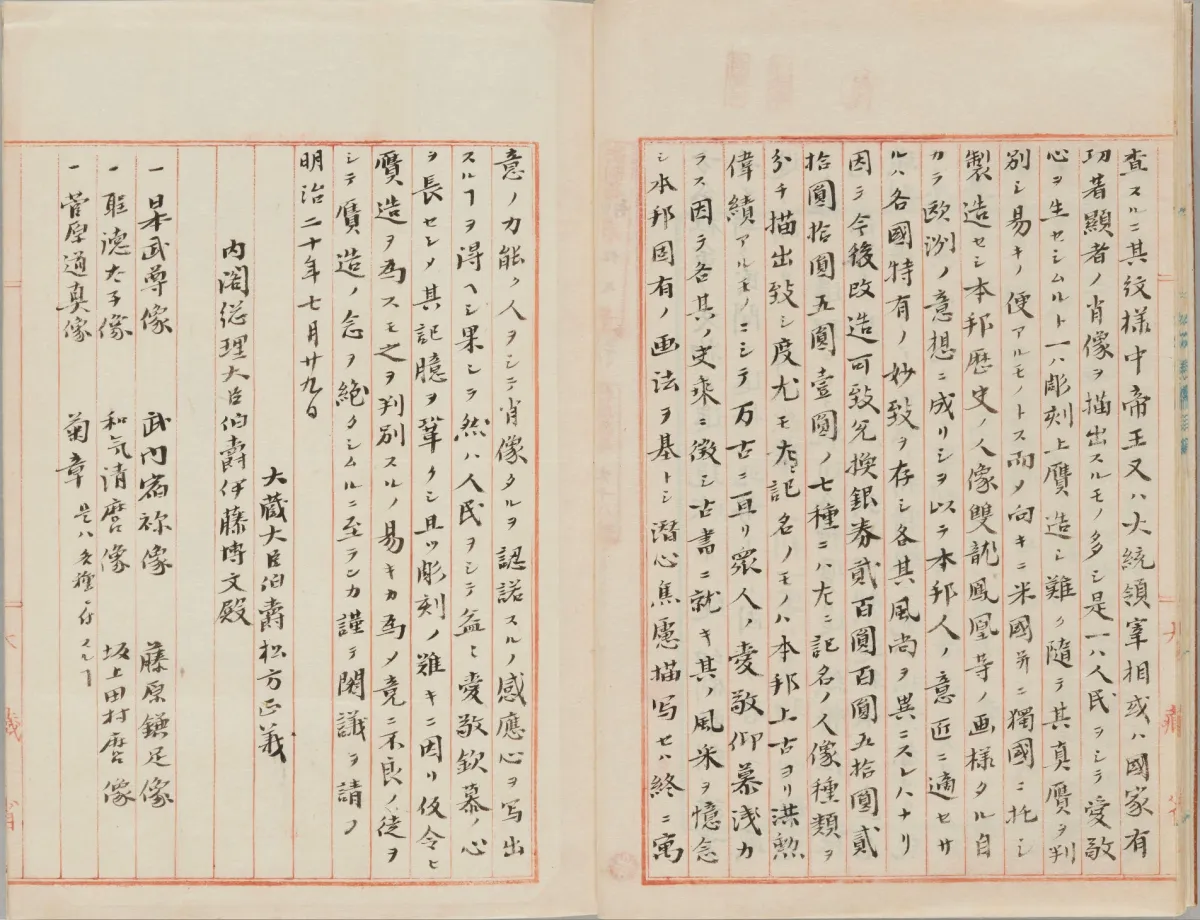 査スルニ其紋様中帝王又ハ大統領宰相或ハ國家有
功著顯者ノ肖像ヲ描出スルモノ多シ是一ハ人民ヲシテ愛敬
心ヲ生セシムルト一ハ彫刻上贋造シ難ク隨テ其真贋ヲ判
別シ易キノ便アルモノトス而メ向キニ米國并ニ獨國ニ托シ
製造セシ本邦歴史ノ人像雙龍鳳凰等ノ画様タル自
カラ欧洲ノ意想ニ成リシヲ以テ本邦人ノ意匠ニ適セサ
ルハ各國特有ノ妙致ヲ存シ各其風尚ヲ異ニスレハナリ
因テ今後改造可致兌換銀券貳百圓百圓五拾圓貳
拾圓拾圓五圓壹圓ノ七種ニハ左ニ記名ノ人像種類ヲ
分チ描出致シ度尤モ左ニ記名ノモノハ本邦上古ヨリ洪勲
偉績アルモノニシテ万古ニ亘リ衆人ノ愛敬仰慕淺カ
ラス因テ各其ノ史乗ニ徴シ古書ニ就キ其ノ風采ヲ憶念
シ本邦固有ノ画法ヲ基トシ潜心焦慮描写セハ終ニ寓
意ノ力能ク人ヲシテ肖像タルヲ認諾スルノ感應心ヲ写出
スルヿヲ得ヘシ果シテ然ハ人民ヲシテ益々愛敬欽慕ノ心
ヲ長セシメ其記臆ヲ鞏クシ且ツ彫刻ノ難キニ因リ仮令ヒ
贋造ヲ為スモ之ヲ判別スルノ易キカ為メ竟ニ不良ノ徒ヲ
シテ贋造ノ念ヲ絶タシムルニ至ランカ謹テ閣議ヲ請フ
明治二十年七月廿九日
大蔵大臣伯爵松方正義
内閣総理大臣伯爵伊藤博文殿
一日本武尊像 武内宿祢像 藤原鎌足像
一聖徳太子像 和気清麿像 坂上田村麿像
一菅原道真像 菊章 是ハ各種ニ付スルヿ